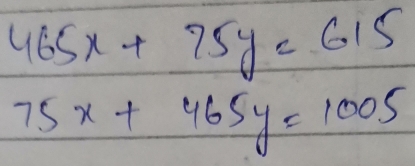 465x + 75y = 615
75x + 465y = 1005